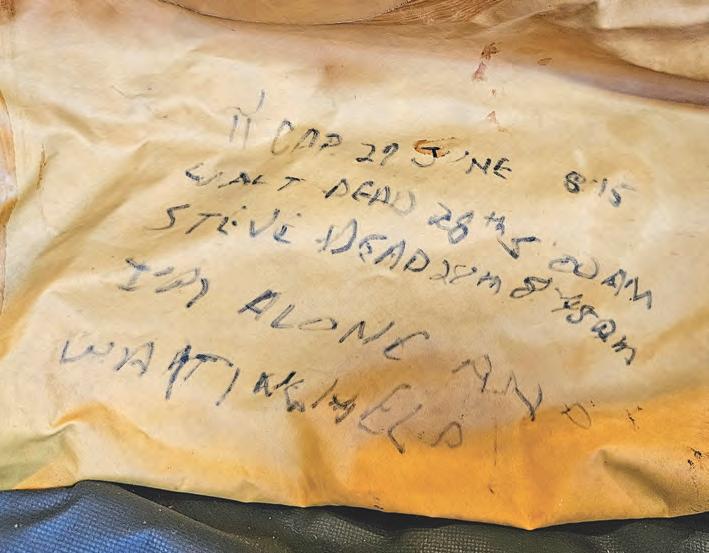 CAP 29 JUNE 8:15
WALT DEAD 28th 5 00 AM
STEVE DEAD 29th 8:45am
I'M ALONE AND
WAITING HELP